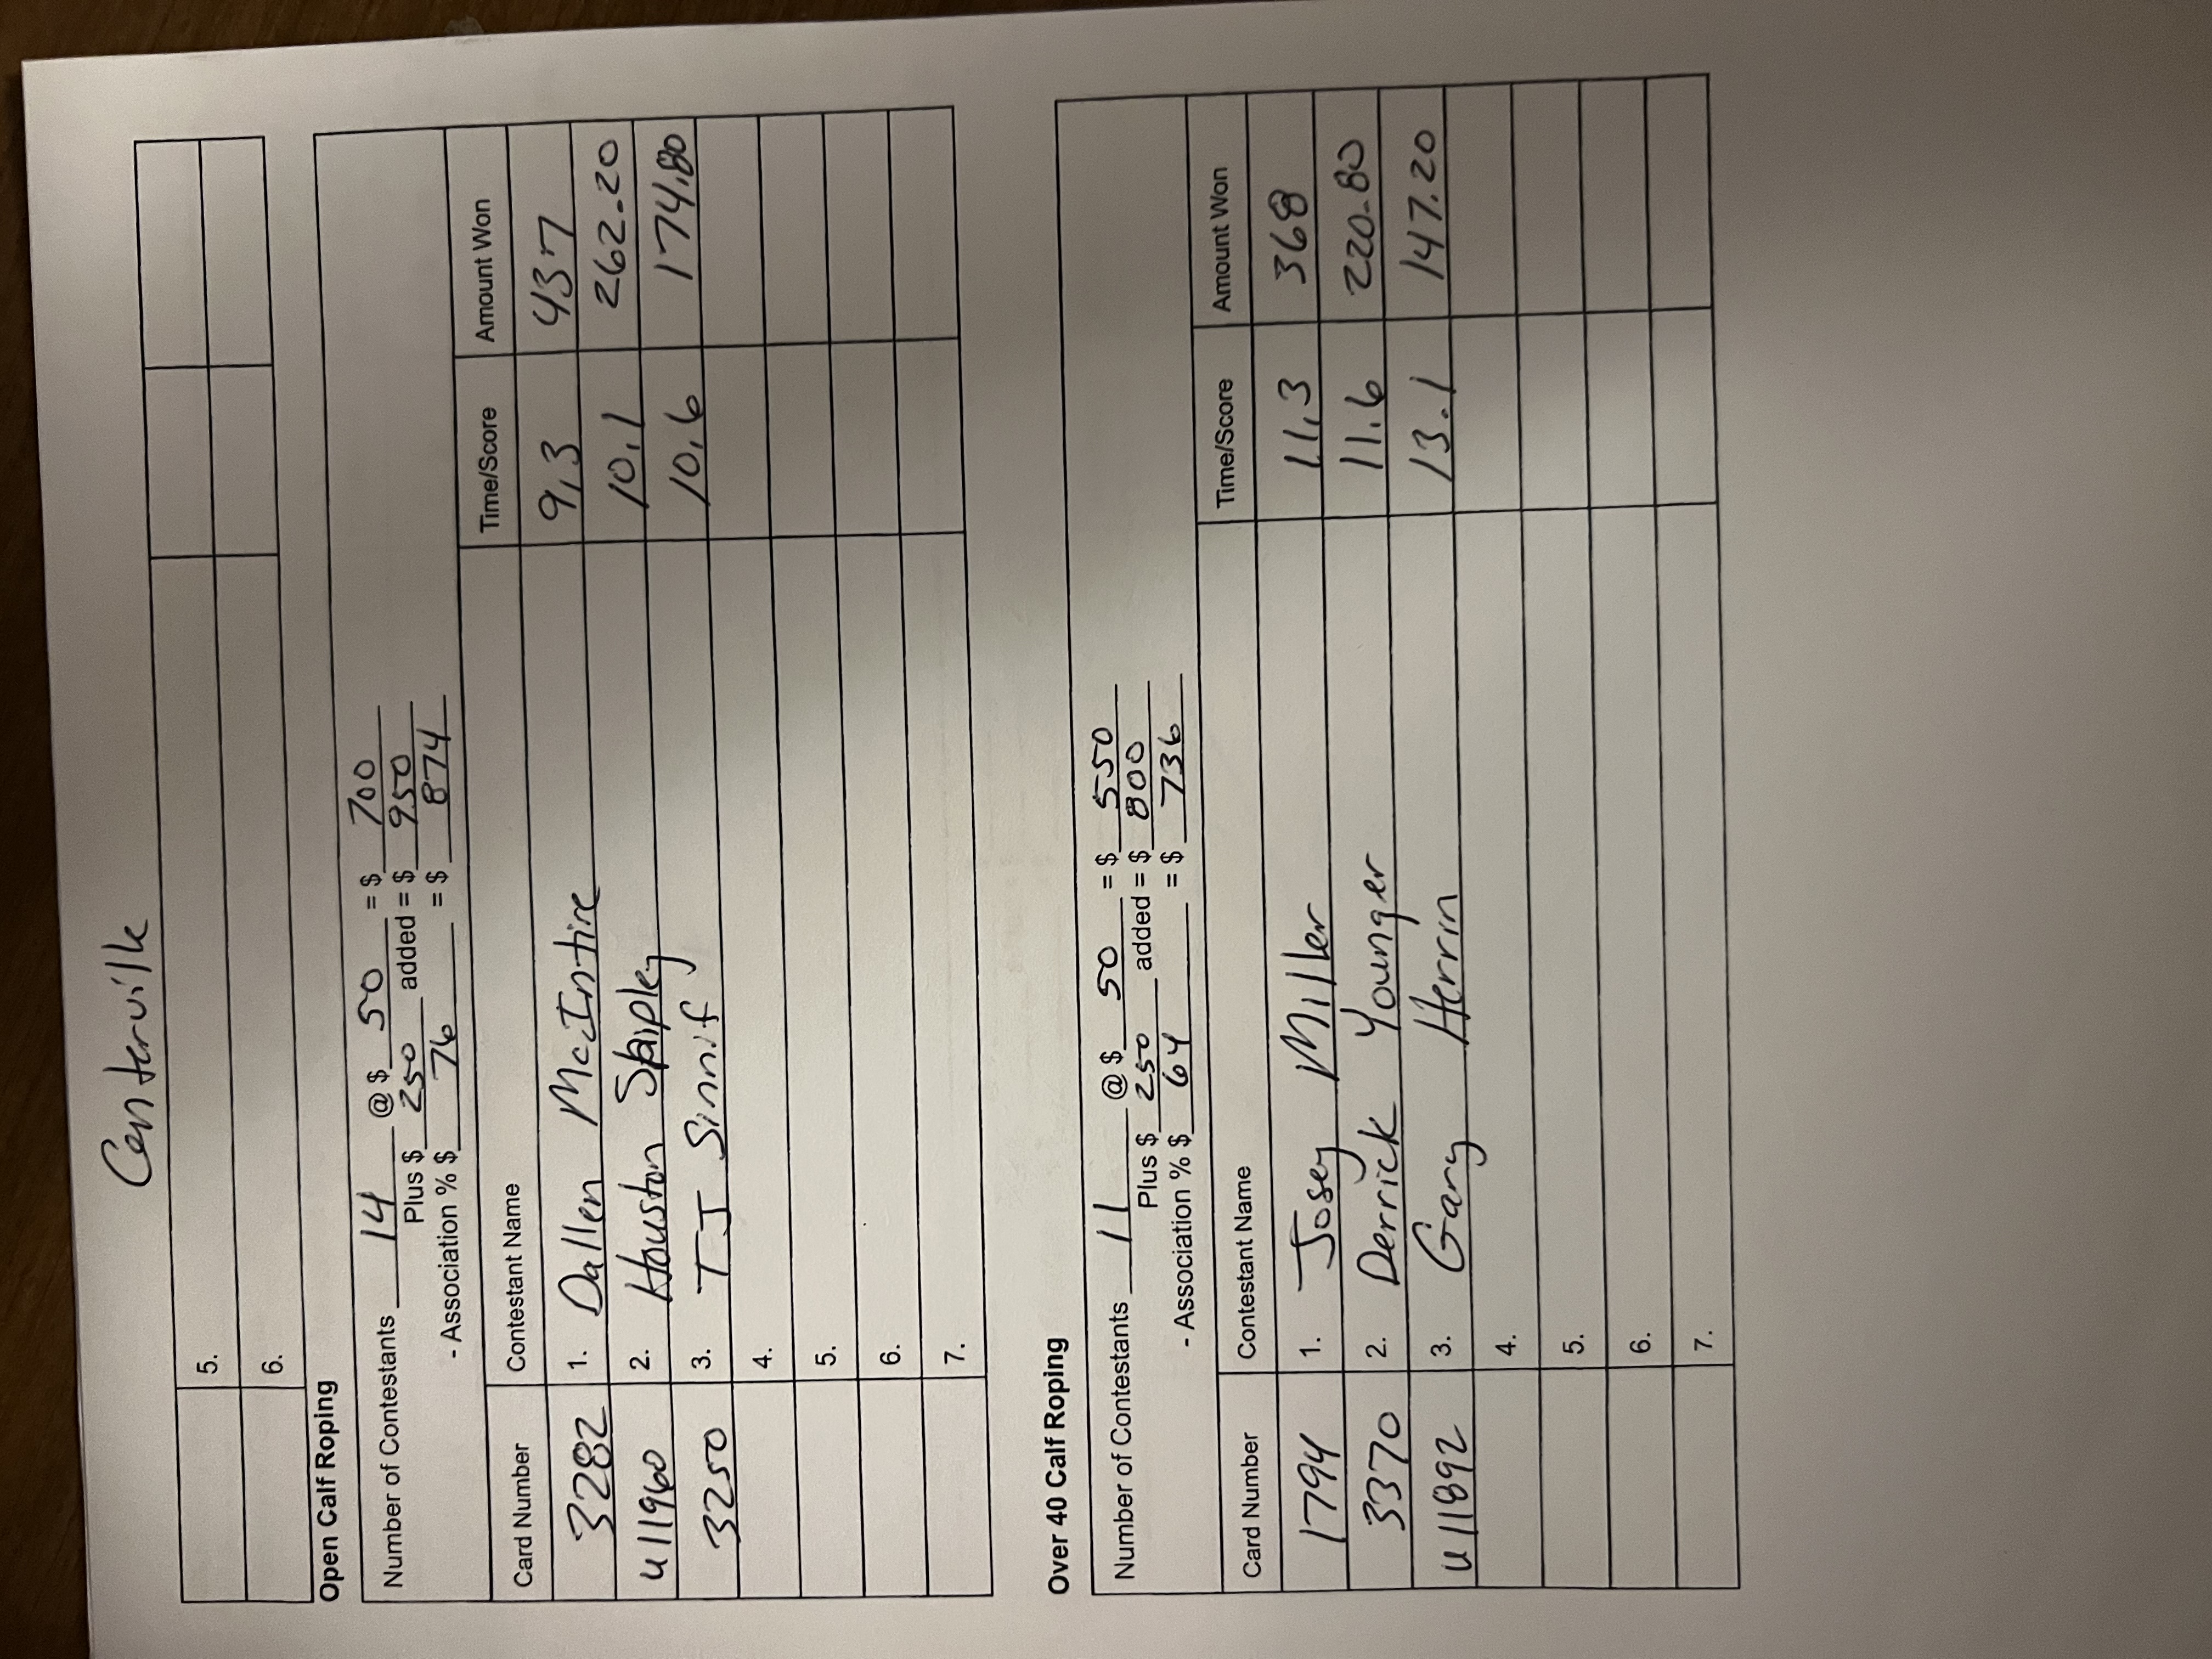 Centerville
5.
6.
Open Calf Roping
Number of Contestants 14 @ $ 50 = $ 700
Plus $ 250 added = $ 950
- Association % $ 76 = $ 874
Card Number Contestant Name Time/Score Amount Won
3282 1. Dallen McIntire 9.3 437
u11960 2. Houston Shipley 10.1 262.20
3250 3. TJ Sinnif 10.6 174.80
4.
5.
6.
7.
Over 40 Calf Roping
Number of Contestants 11 @ $ 50 = $ 550
Plus $ 250 added = $ 800
- Association % $ 64 = $ 736
Card Number Contestant Name Time/Score Amount Won
1794 1. Josey Miller 11.3 368
3370 2. Derrick Younger 11.6 220.80
u11892 3. Gary Herrin 13.1 147.20
4.
5.
6.
7.